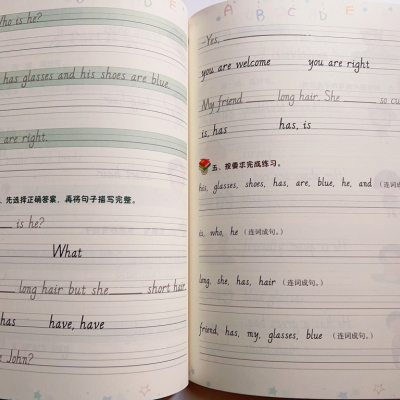 Who is he?
has glasses and his shoes are blue.
are right.
、先选择正确答案，再将句子描写完整。
is he?
What
long hair but she short hair.
has have, have
John?
A B C D E
—Yes,
you are welcome you are right
My friend long hair. She so
is, has has, is
五、按要求完成练习。
his, glasses, shoes, has, are, blue, he, and （连词成
is, who, he （连词成句。）
long, she, has, hair （连词成句。）
friend, has, my, glasses, blue （连词成句。）